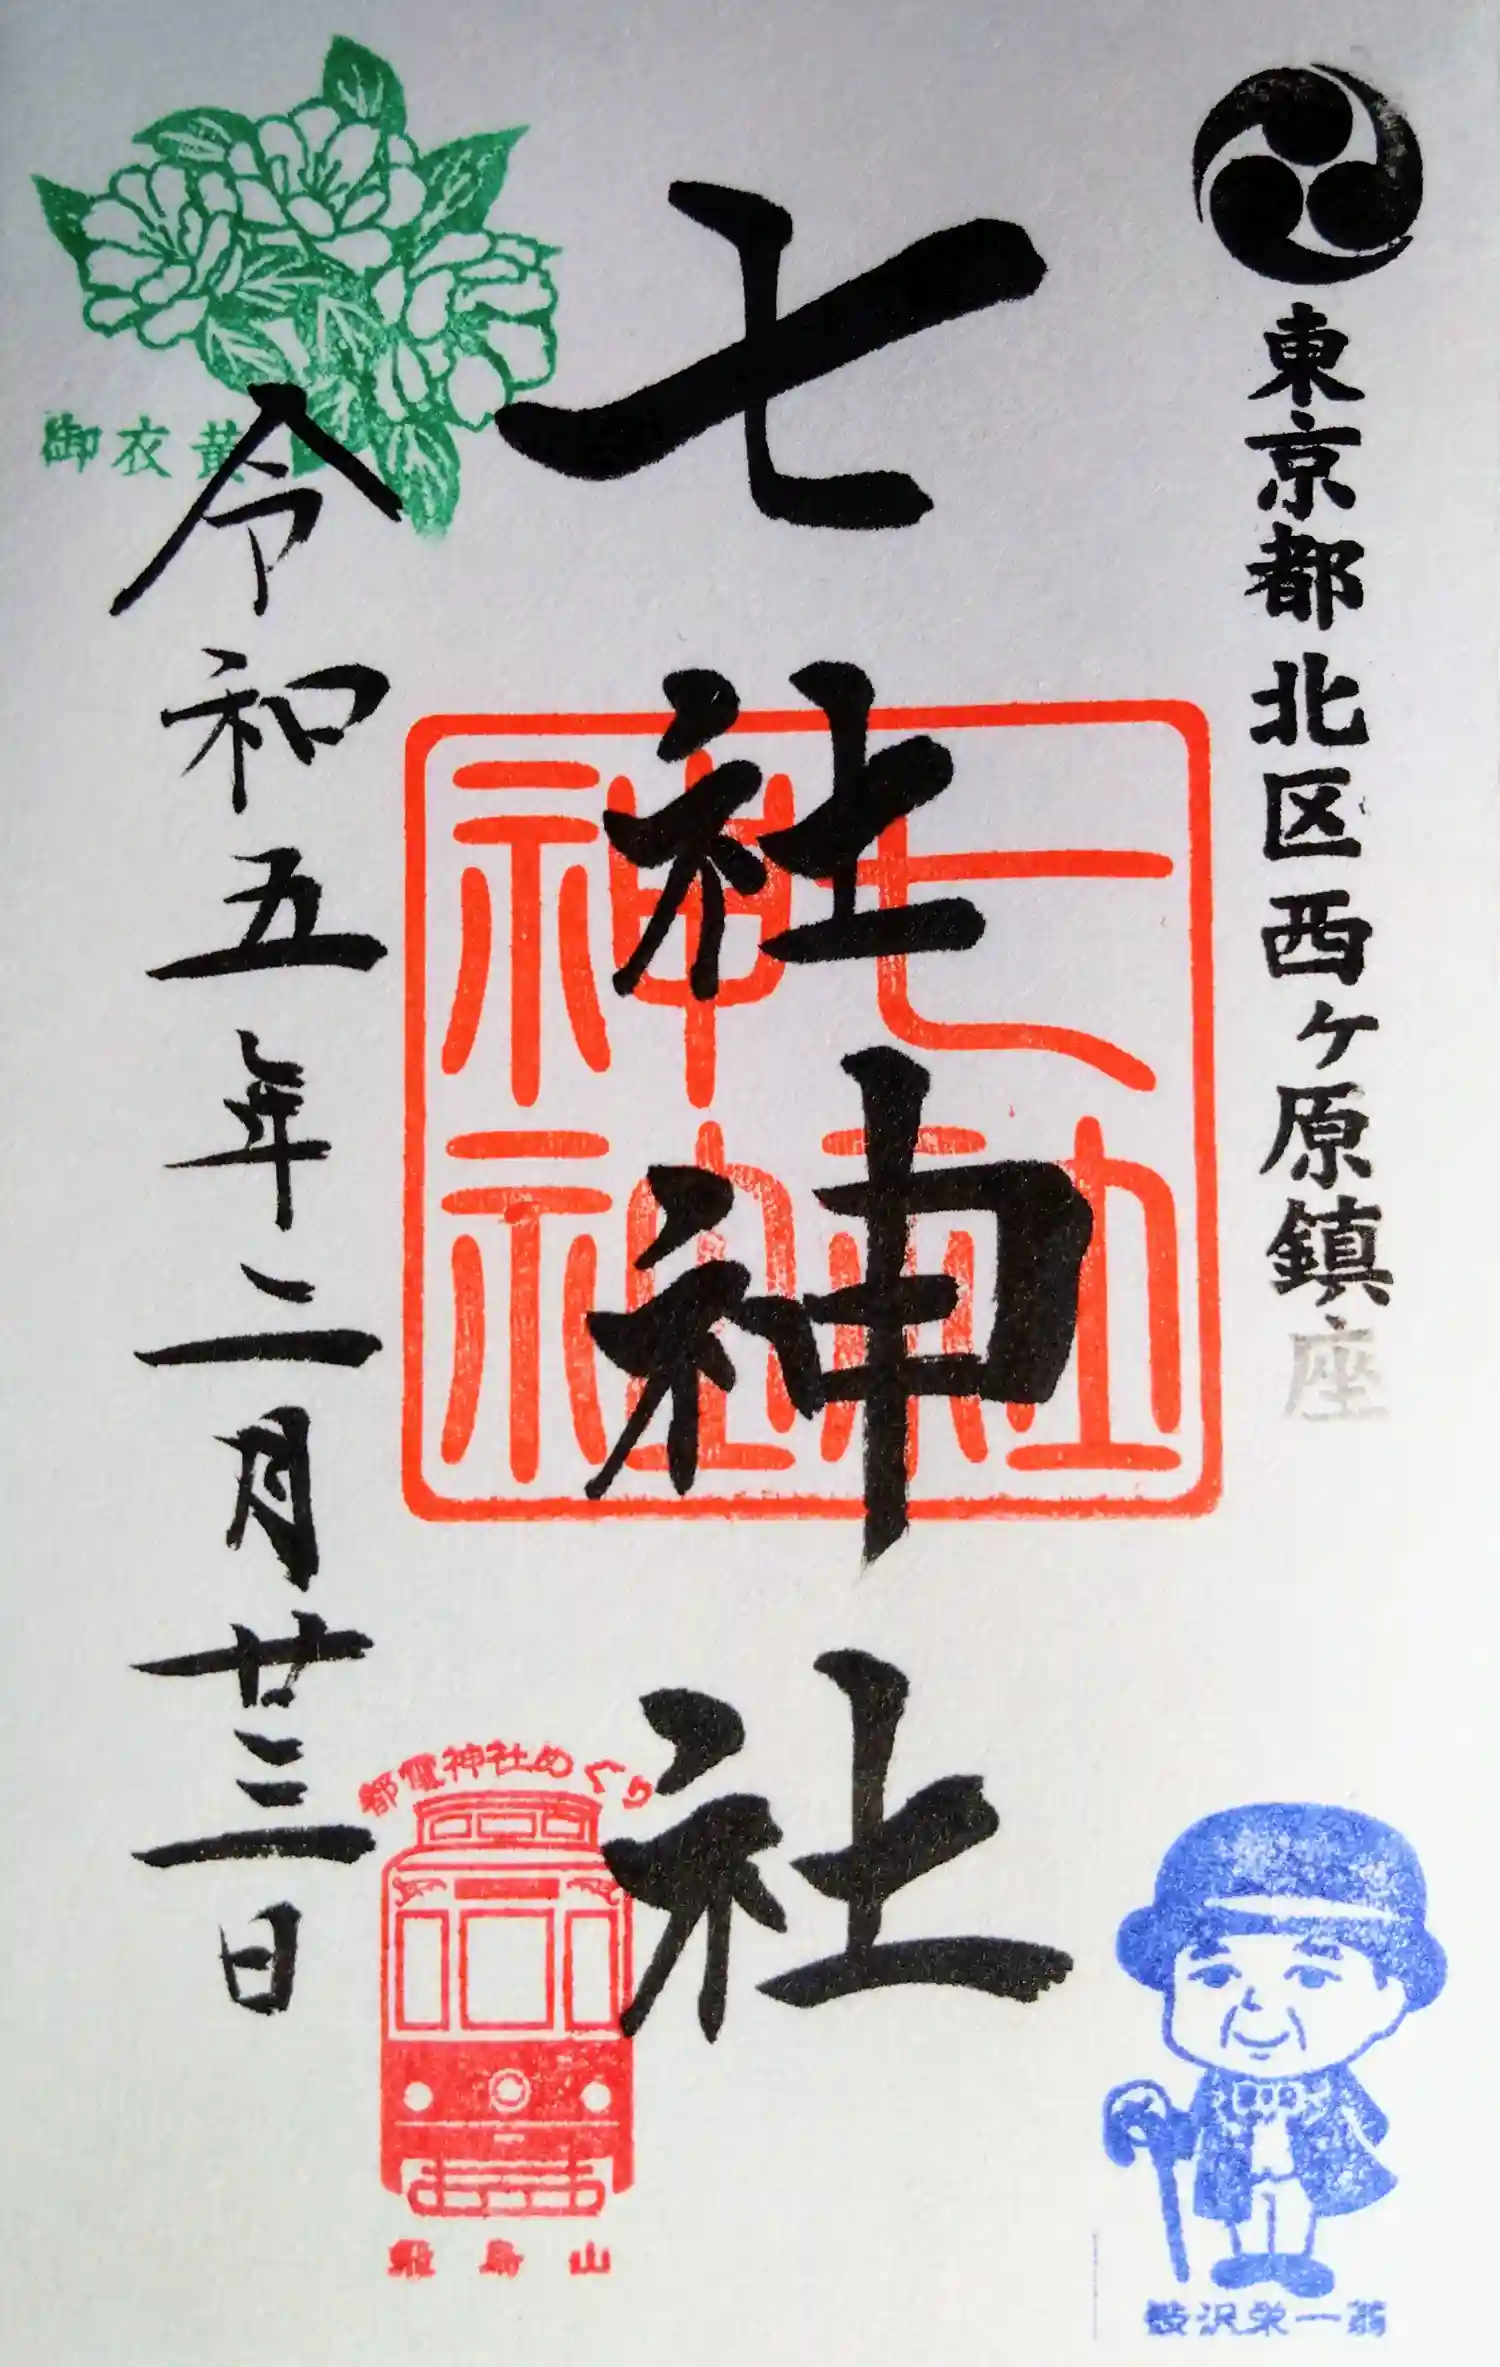 東京都北区西ヶ原鎮座
七社神社
七社神社
御衣黄
令和五年二月廿三日
都電神社めぐり
飛鳥山
渋沢栄一翁